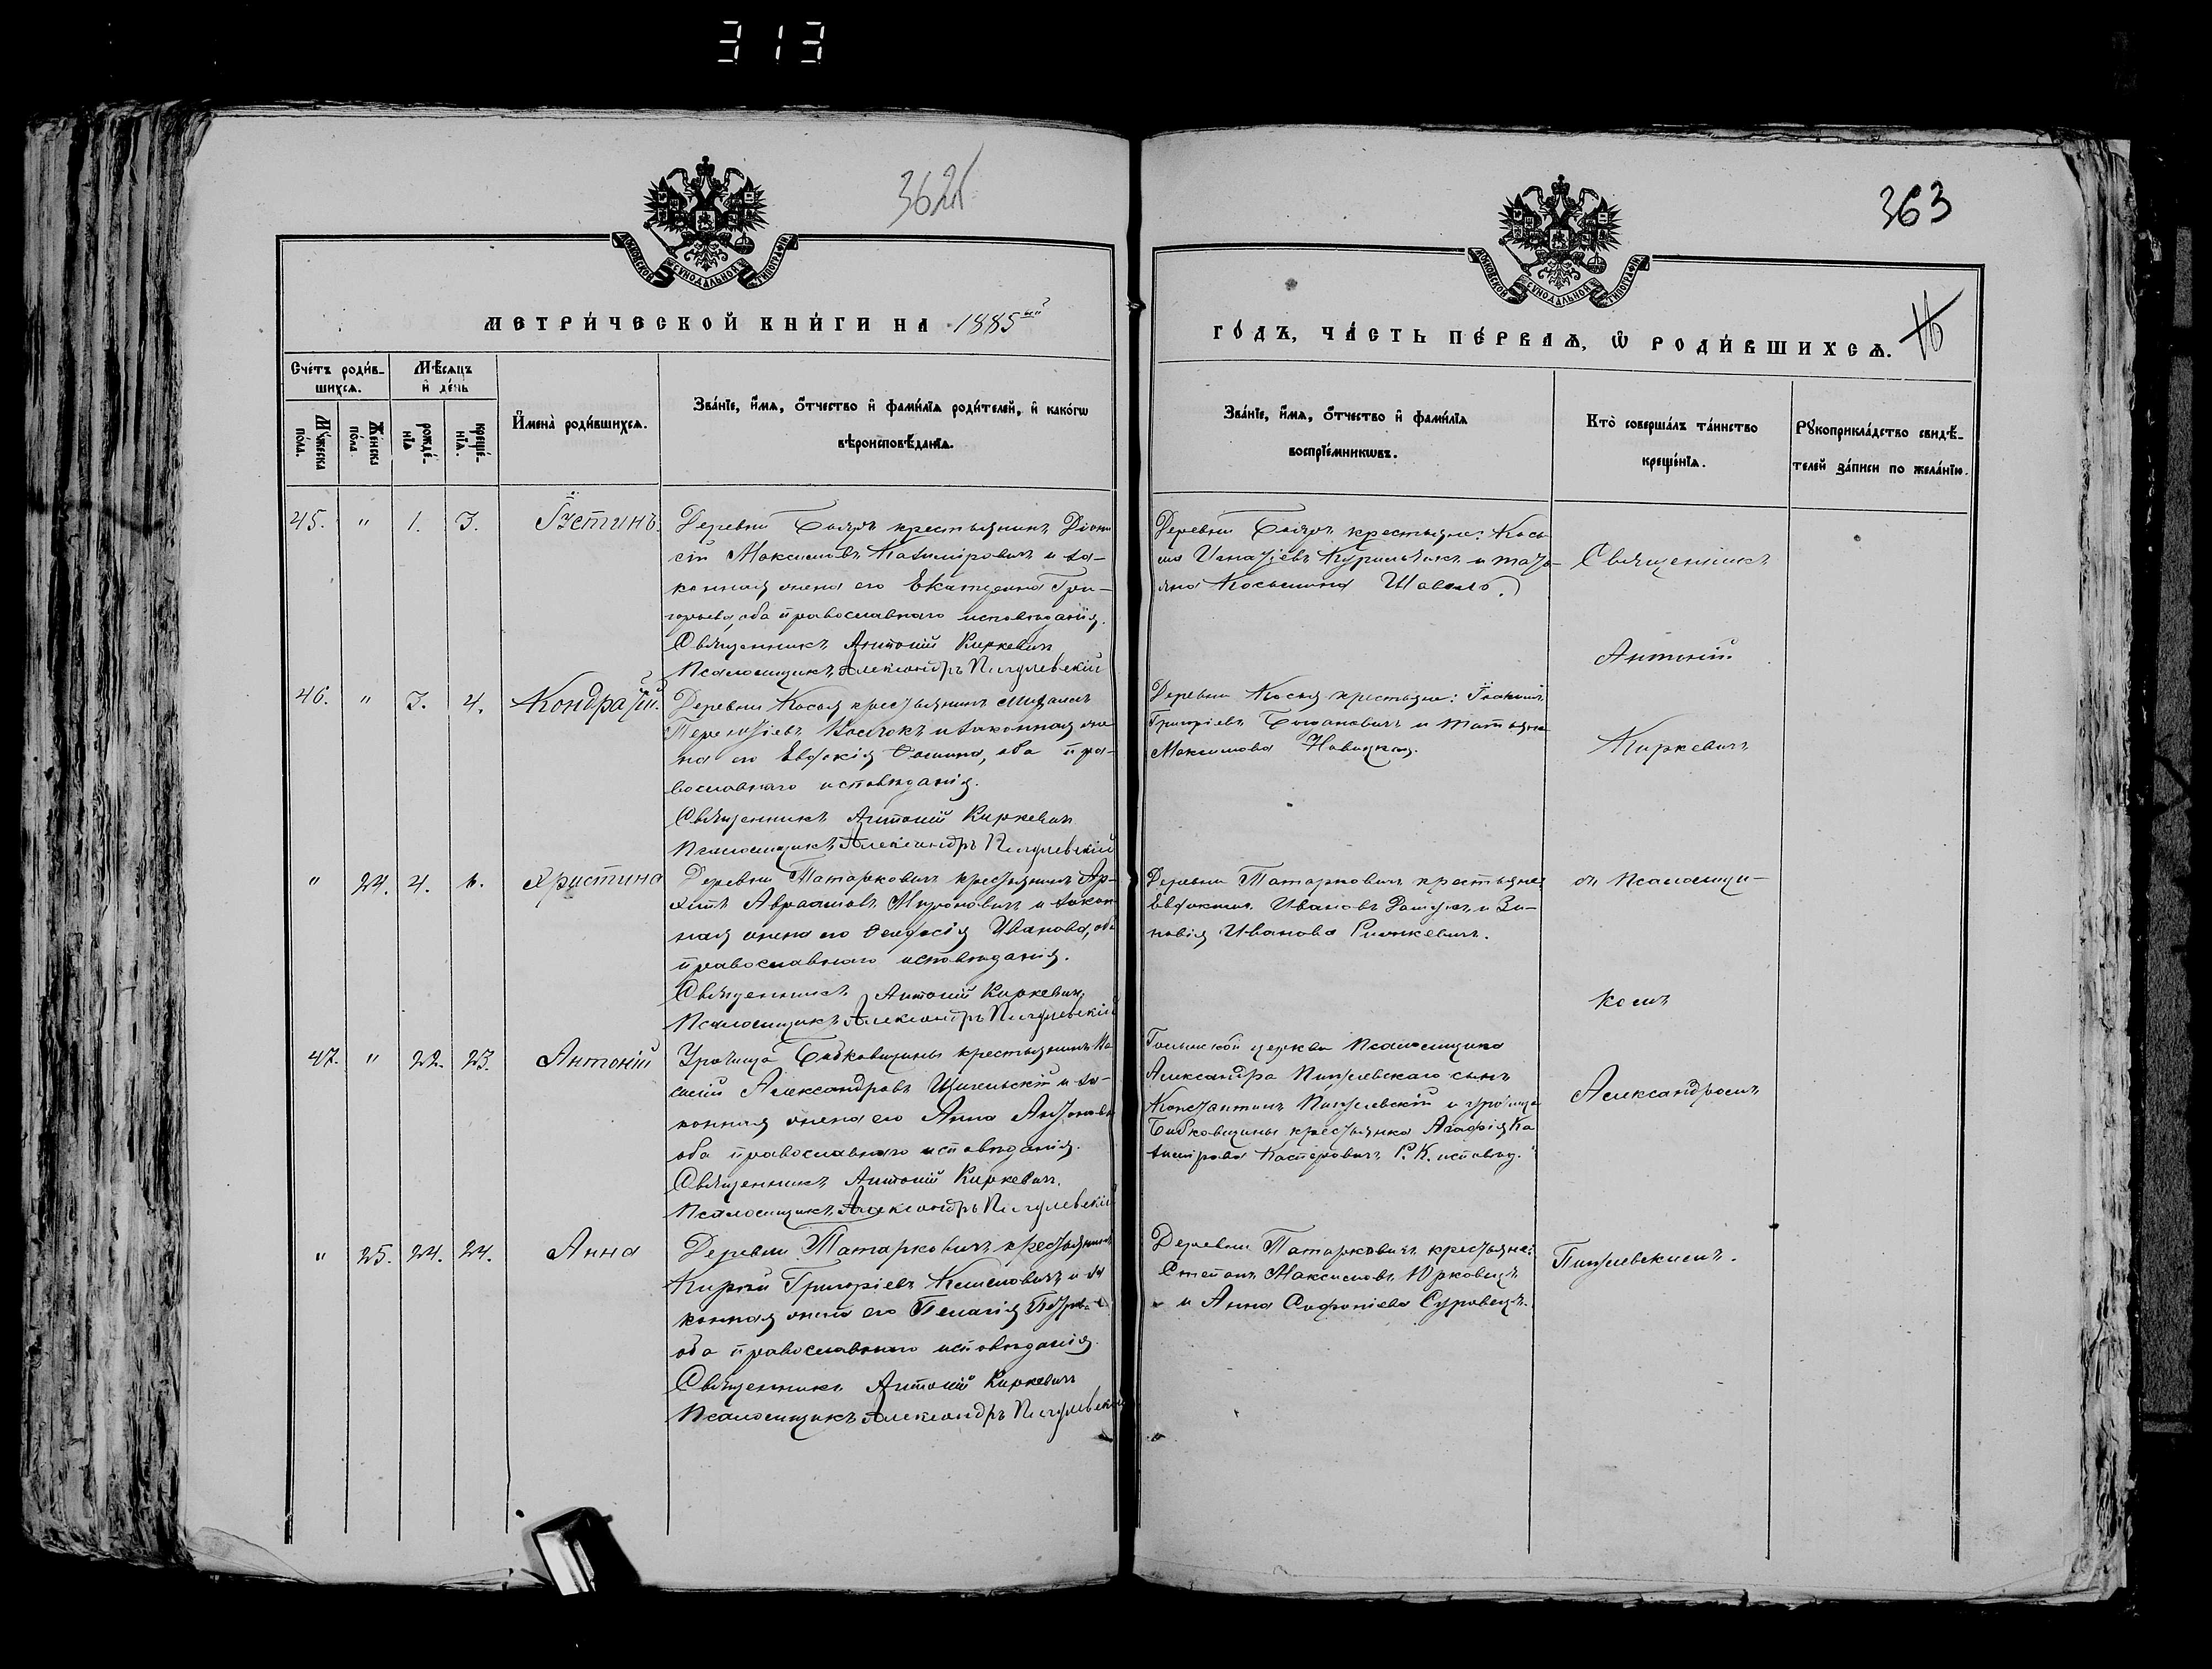 313
362
363
МОСКОВСКОЙ СѴНОДАЛЬНОЙ ТИПОГРАФІИ
МОСКОВСКОЙ СѴНОДАЛЬНОЙ ТИПОГРАФІИ
МЕТРИ́ЧЕСКОЙ КНИ́ГИ НА 1885ый
ГО́ДЪ, ЧА́СТЬ ПЕ́РВАѦ, Ѽ РОДИ́ВШИХСѦ. 16
Сче́тъ роди́в-
шихсѧ.
Мѣ́сѧцъ
и҆ де́нь
Мꙋ́жеска
по́ла.
Же́нска
по́ла
рожде́-
нїѧ
креще́-
нїѧ.
И҆мена̀ роди́вшихсѧ.
Зва́нїе, и҆́мѧ, ѻ҆́тчество и҆ фами́лїѧ роди́телей, и҆ како́гѡ
вѣроисповѣ́данїѧ.
Зва́нїе, и҆́мѧ, ѻ҆́тчество и҆ фами́лїѧ
воспрїе́мникѡвъ.
Кто̀ соверша́лъ та́инство
креще́нїѧ.
Рꙋкоприкла́дство свидѣ́-
телей за́писи по жела́нїю.
45. " 1. 3. Іустинъ.
Деревни Бояръ крестьянинъ Діони
сій Максимовъ Казиміровичъ и за-
конная жена его Екатерина Гри-
горьева, оба православнаго исповѣданія.
Священникъ Антоній Киркевичъ
Псаломщикъ Александръ Пигулевскій
Деревни Бояръ крестьяне: Кось
ма Игнатіевъ и Татья-
яна Косьмина Шаваль.
Священникъ
Антоній
Киркевичъ
46. " 3. 4. Кондратій.
Деревни Косыя крестьянинъ Михаилъ
Терентіевъ и законная же
на его Евдокія Ѳомина, оба пра-
вославнаго исповѣданія.
Священникъ Антоній Киркевичъ
Псаломщикъ Александръ Пигулевскій
Деревни Косыя крестьяне: Іоакимъ
Григоріевъ и Татьяна
Максимова Новицкая.
" 24. 4. 6. Христина
Деревни Татарковичъ крестьянинъ Ар-
хипъ Авраамовъ Мироновичъ и закон
ная жена его Ѳеодосія Иванова, оба
православнаго исповѣданія.
Священникъ Антоній Киркевичъ
Псаломщикъ Александръ Пигулевскій
Деревни Татарковичъ крестьяне:
Ивановъ и Зи-
новія Иванова
съ Псаломщи-
комъ
Александромъ
Пигулевскимъ.
47. " 22. 23. Антоній
Урочища крестьянинъ Ва
силій Александровъ и за-
конная жена его Анна Антонова
оба православнаго исповѣданія.
Священникъ Антоній Киркевичъ.
Псаломщикъ Александръ Пигулевскій
церкви Псаломщика
Александра Пигулевскаго сынъ
Константинъ Пигулевскій и урочища
крестьянка Агафія Ка
зимірова Касперовичъ Р. К. исповѣд.
" 25. 24. 24. Анна
Деревни Татарковичъ крестьянинъ
Григоріевъ и за
конная жена его Пелагія Петрова
оба православнаго исповѣданія.
Священникъ Антоній Киркевичъ
Псаломщикъ Александръ Пигулевскій
Деревни Татарковичъ крестьяне:
Степанъ Максимовъ Юрковецъ
и Анна Софоніева Суровецъ.